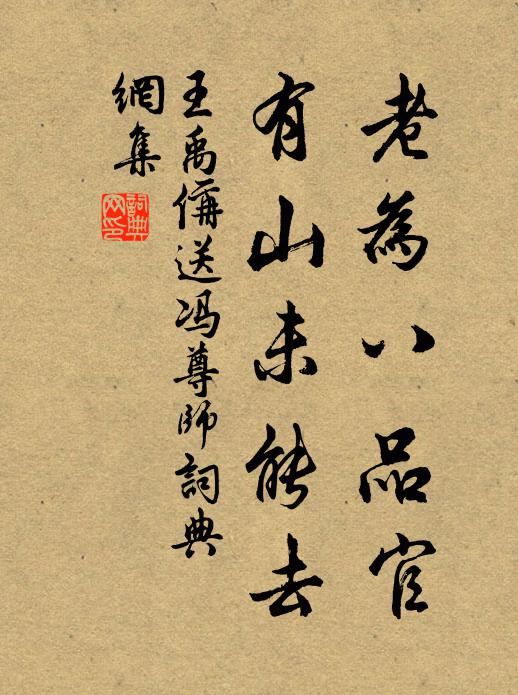 老為八品官
有山未能去
王禹偁送冯尊師詞典
網集
詞典網印